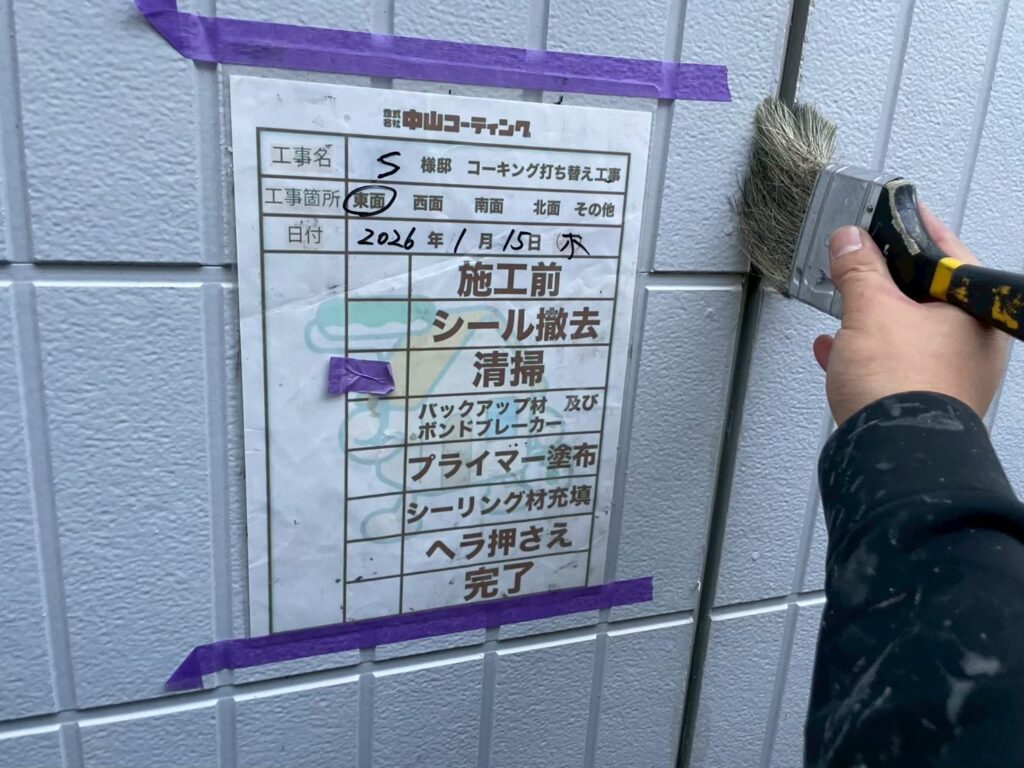 株式会社 中山コーティング
工事名 S 様邸 コーキング打ち替え工事
工事箇所 東面 西面 南面 北面 その他
日付 2026年 1月 15日 (木)
施工前
シール撤去
清掃
バックアップ材 及び
ボンドブレーカー
プライマー塗布
シーリング材充填
ヘラ押さえ
完了